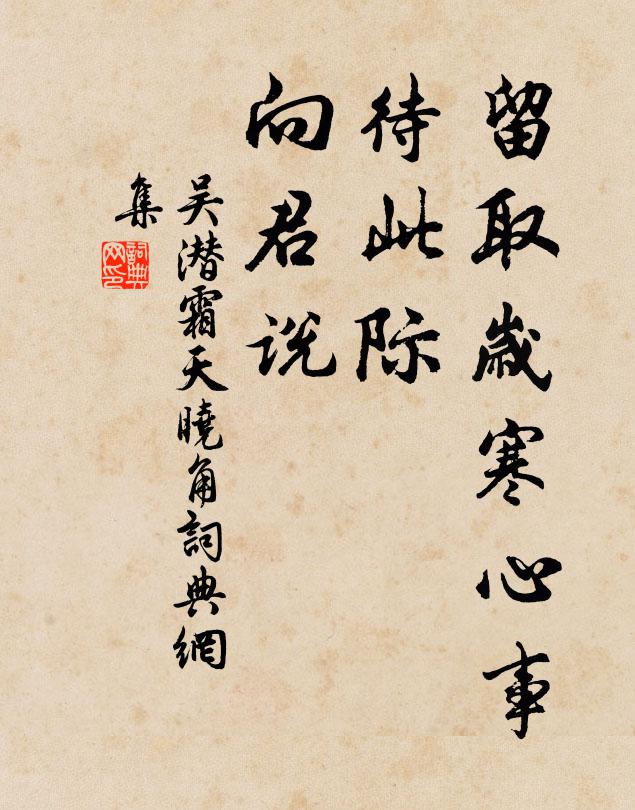 留取歲寒心事
待此际
向君说
吴潜霜天曉角詞典網
集
詞典网印